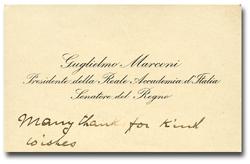 Guglielmo Marconi
Presidente della Reale Accademia d'Italia
Senatore del Regno
Many thank for kind
wishes